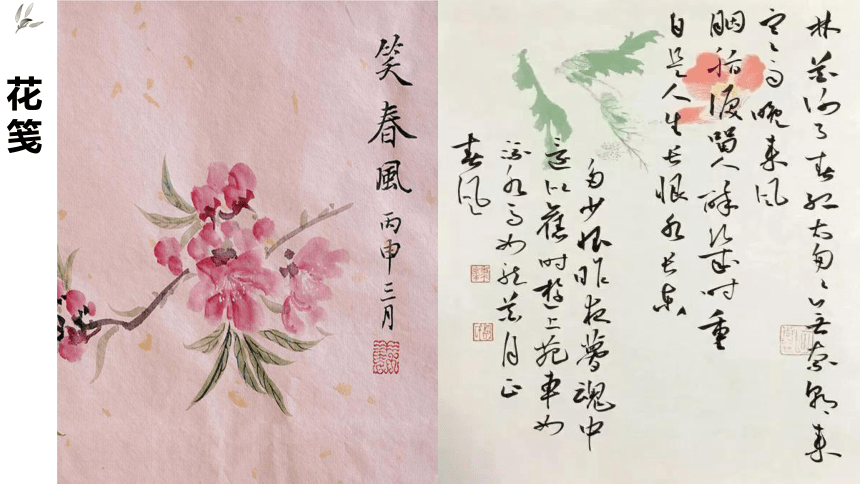 花笺
笑春風
丙申三月
林花谢了春红太匆〻无奈朝来
寒雨晚来风
胭脂泪留人醉几时重
自是人生长恨水长东
多少恨昨夜夢魂中
还似舊时游上苑車如
流水马如龙花月正
春风